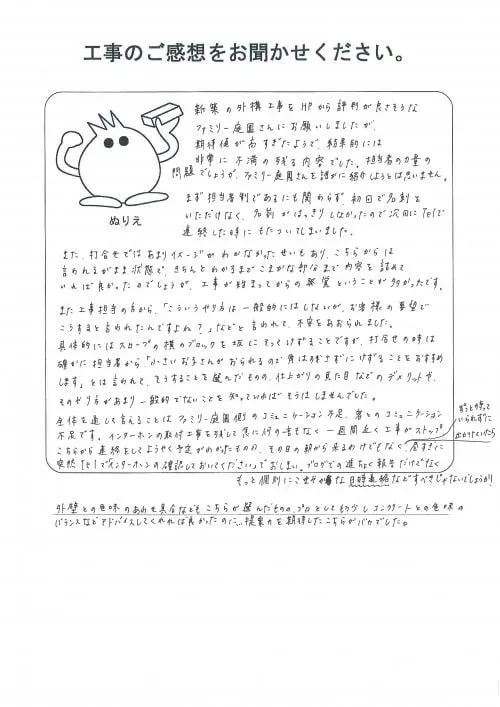 工事のご感想をお聞かせください。
新築の外構工事をHPから評判が良さそうな
ファミリー庭園さんにお願いしましたが、
期待値が高すぎたようで、結果的には
非常に不満の残る内容でした。担当者の力量の
問題でしょうが、ファミリー庭園さんを誰かに紹介しようとは思いません。
ぬりえ
まず担当者制であるにも関わらず、初回で名刺を
いただけなく、名前がはっきりしなかったので次回にTelで
連絡した時にもたついてしまいました。
また、打合せではあまりイメージがわかなかったせいもあり、こちらからは
言われるがまま状態で、きちんとわかるまでこまかな部分まで内容を詰めて
いれば良かったのでしょうが、工事が始まってからの 覚 ということが多かったです。
また工事担当の方から、「こういうやり方は一般的にはしないが、お客様の要望で
こうすると言われたんですよね？」などと言われて、不安をあおられました。
具体的にはスロープの横のブロックを坂にそってけずることですが、打合せの時は
確かに担当者から「小さいお子さんがおられるので角は残さずにけずることをおすすめ
します」とは言われて、そうすることを選んだものの、仕上がりの見た目などのデメリットや、
そのやり方があまり一般的でないことを知っていればそうはしませんでした。
全体を通して言えることはファミリー庭園側のコミュニケーション不足、客とのコミュニケーション
不足です。インターホンの取付工事を残して急に何の音もなく一週間近く工事がストップ
こちらから連絡をしてようやく予定がわかったものの、その日の朝から来るわけでもなく、昼すぎに
ずっと待って
いられずに
出かけていたら
突然Telで「インターホンの確認しておいてください」でおしまい。ブログでの進ちょく報告だけでなく
もっと個別にこまやかな日時連絡などすべきじゃないでしょうか
外壁との色味のあわせ具合なども こちらが選んだものの、プロとしてもう少しコンクリートとの色味の
バランスなどアドバイスしてくれれば良かったのに…提案力を期待したこちらがバカでした。